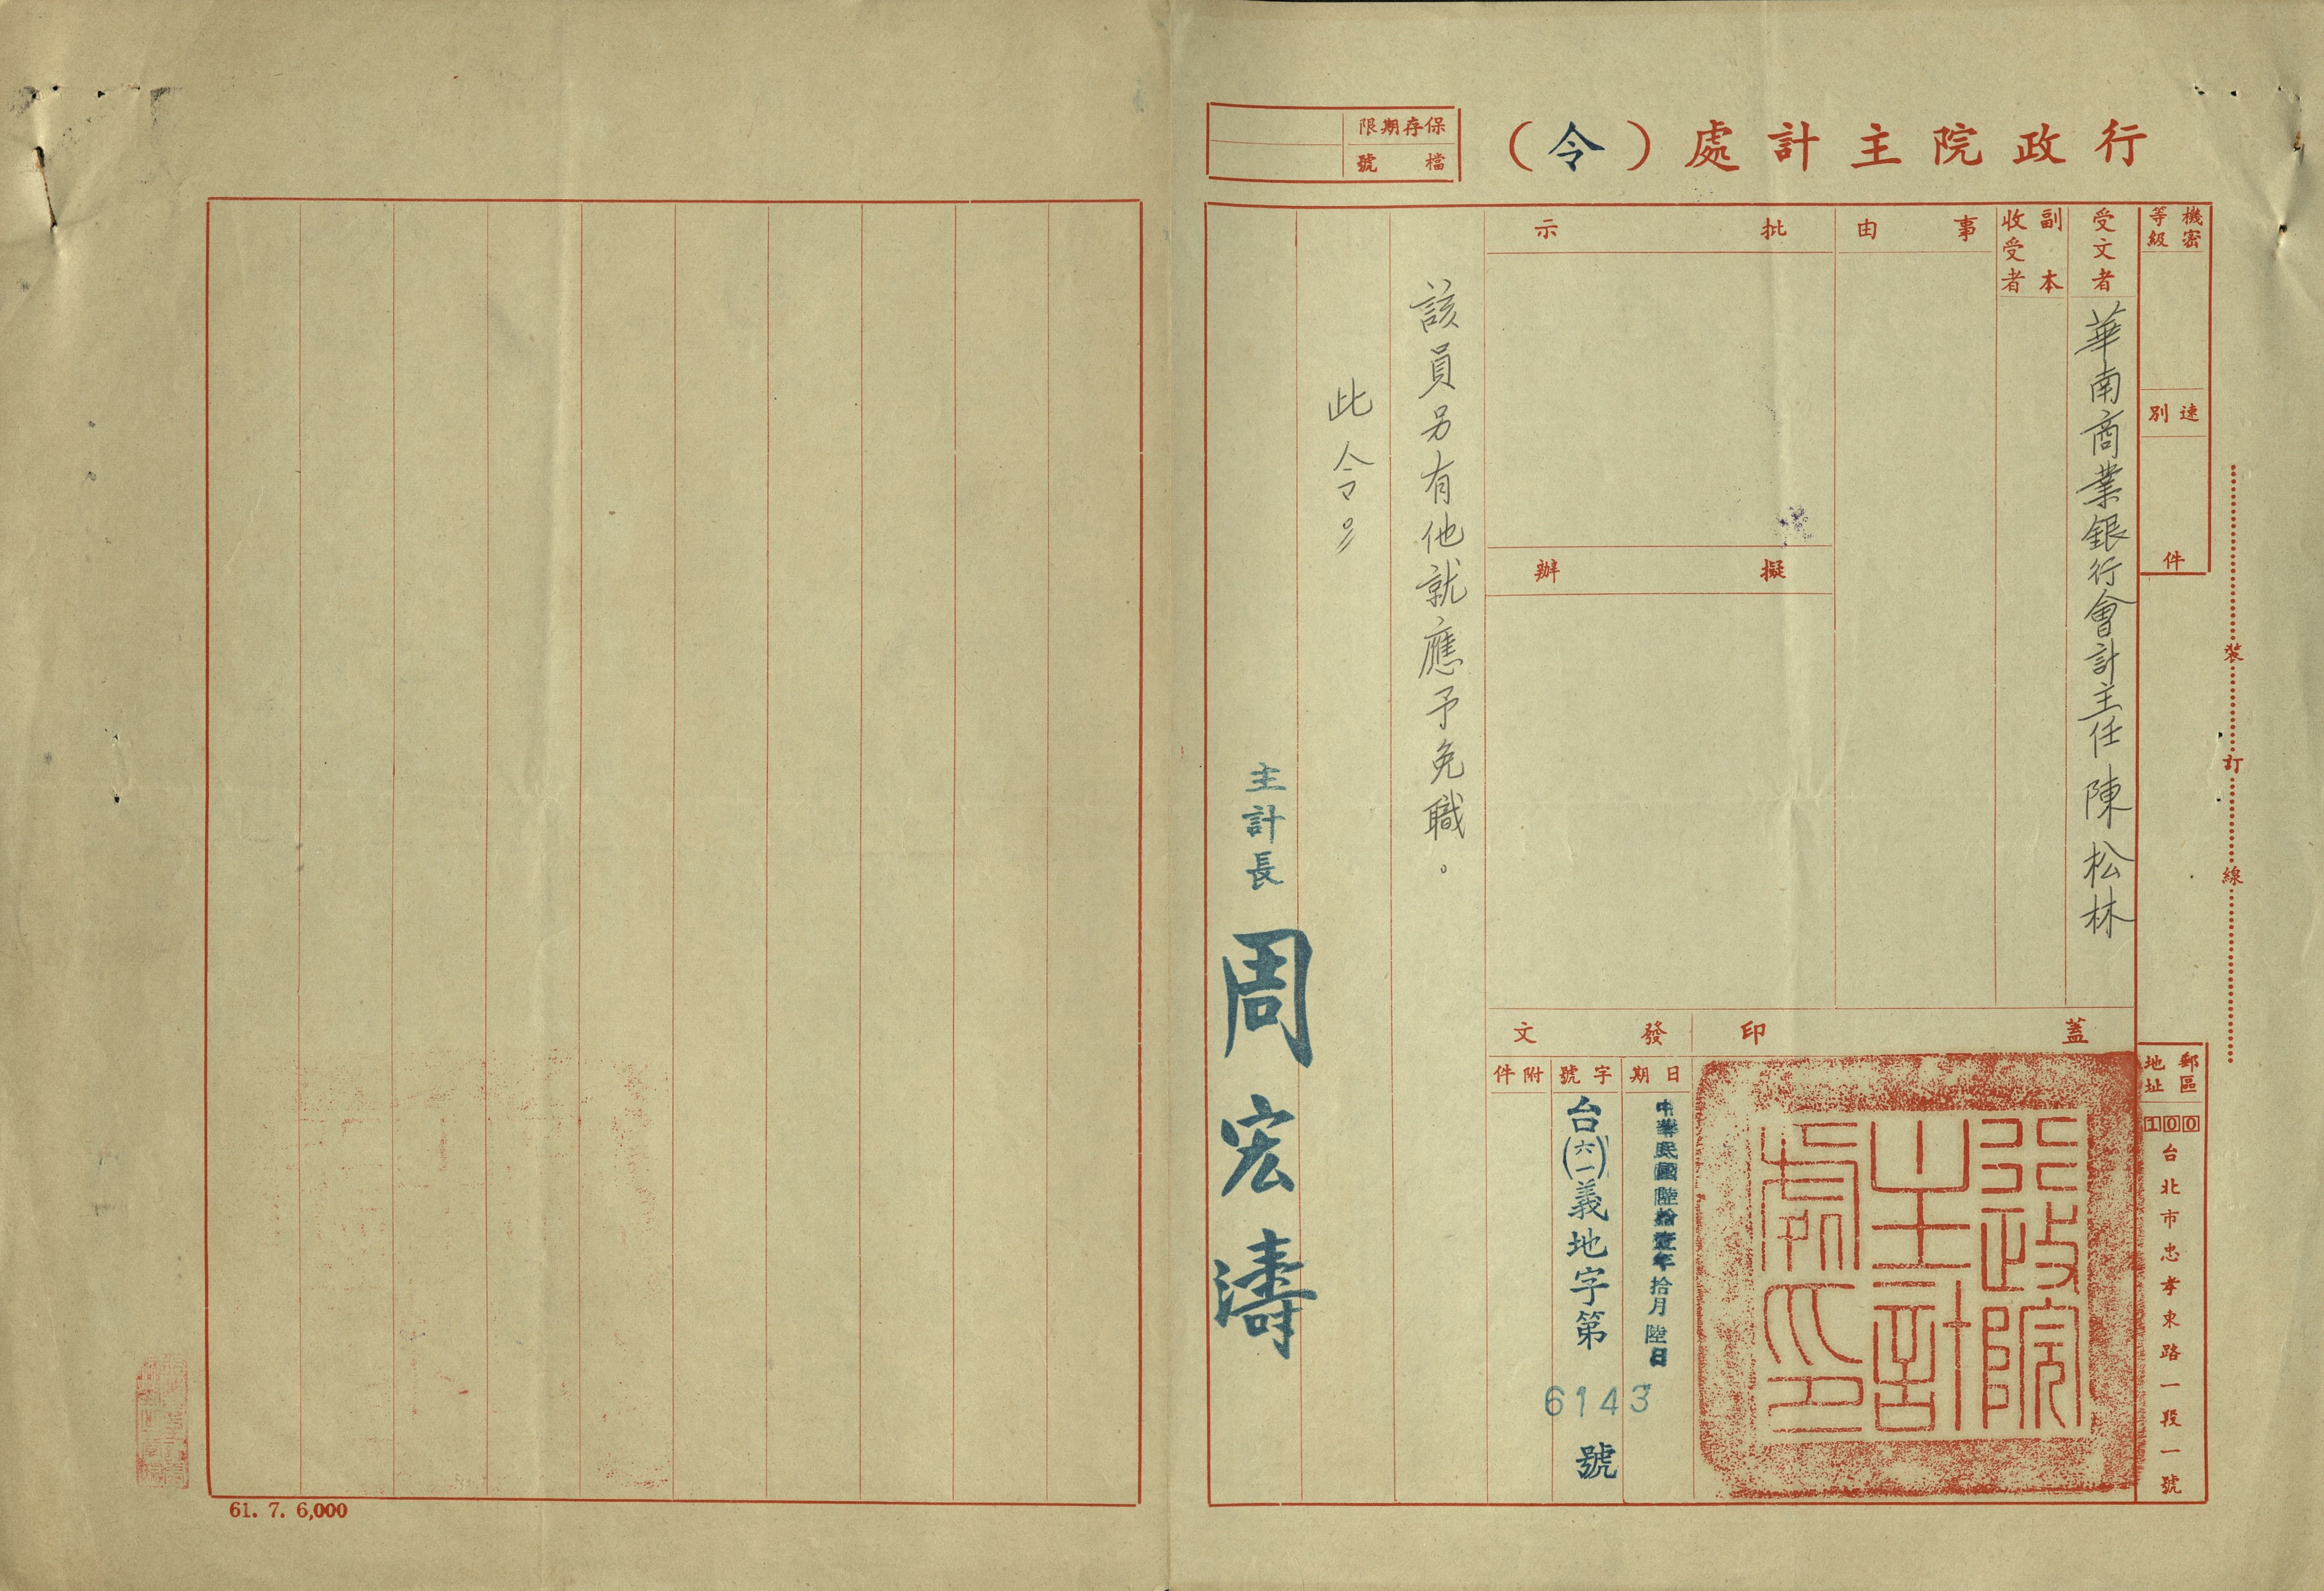 行政院主計處（令）
保存期限
檔號
機密等級
速別
件
受文者
華南商業銀行會計主任陳松林
副本收受者
事由
批示
擬辦
蓋印
發文
日期
中華民國陸拾壹年拾月陸日
字號
台(六一)義地字第
6143
號
附件
行政院主計處印
郵區地址
100
台北市忠孝東路一段一號
裝訂線
該員另有他就應予免職。
此令
主計長
周宏濤
61. 7. 6,000